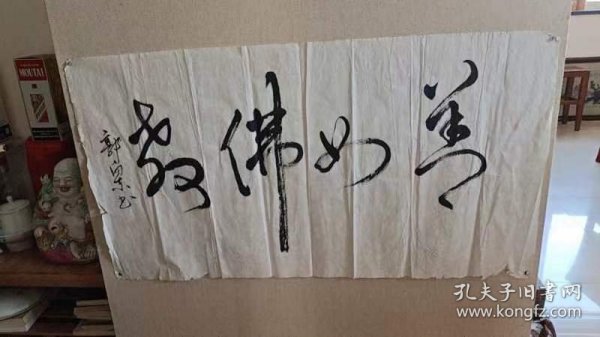 善如佛教
郭书
MOUTAI
孔夫子旧书网
www.kongfz.com